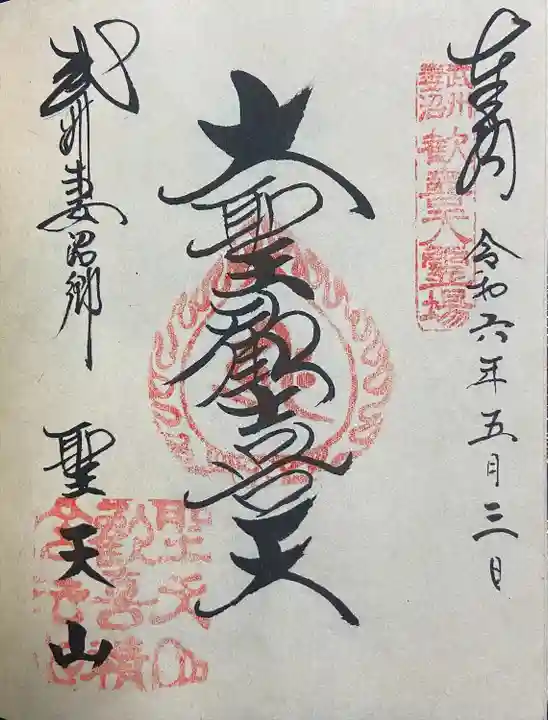 奉拝
令和六年五月三日
武州
妻沼
歓喜天霊場
大聖歓喜天
武州妻沼郷
聖天山